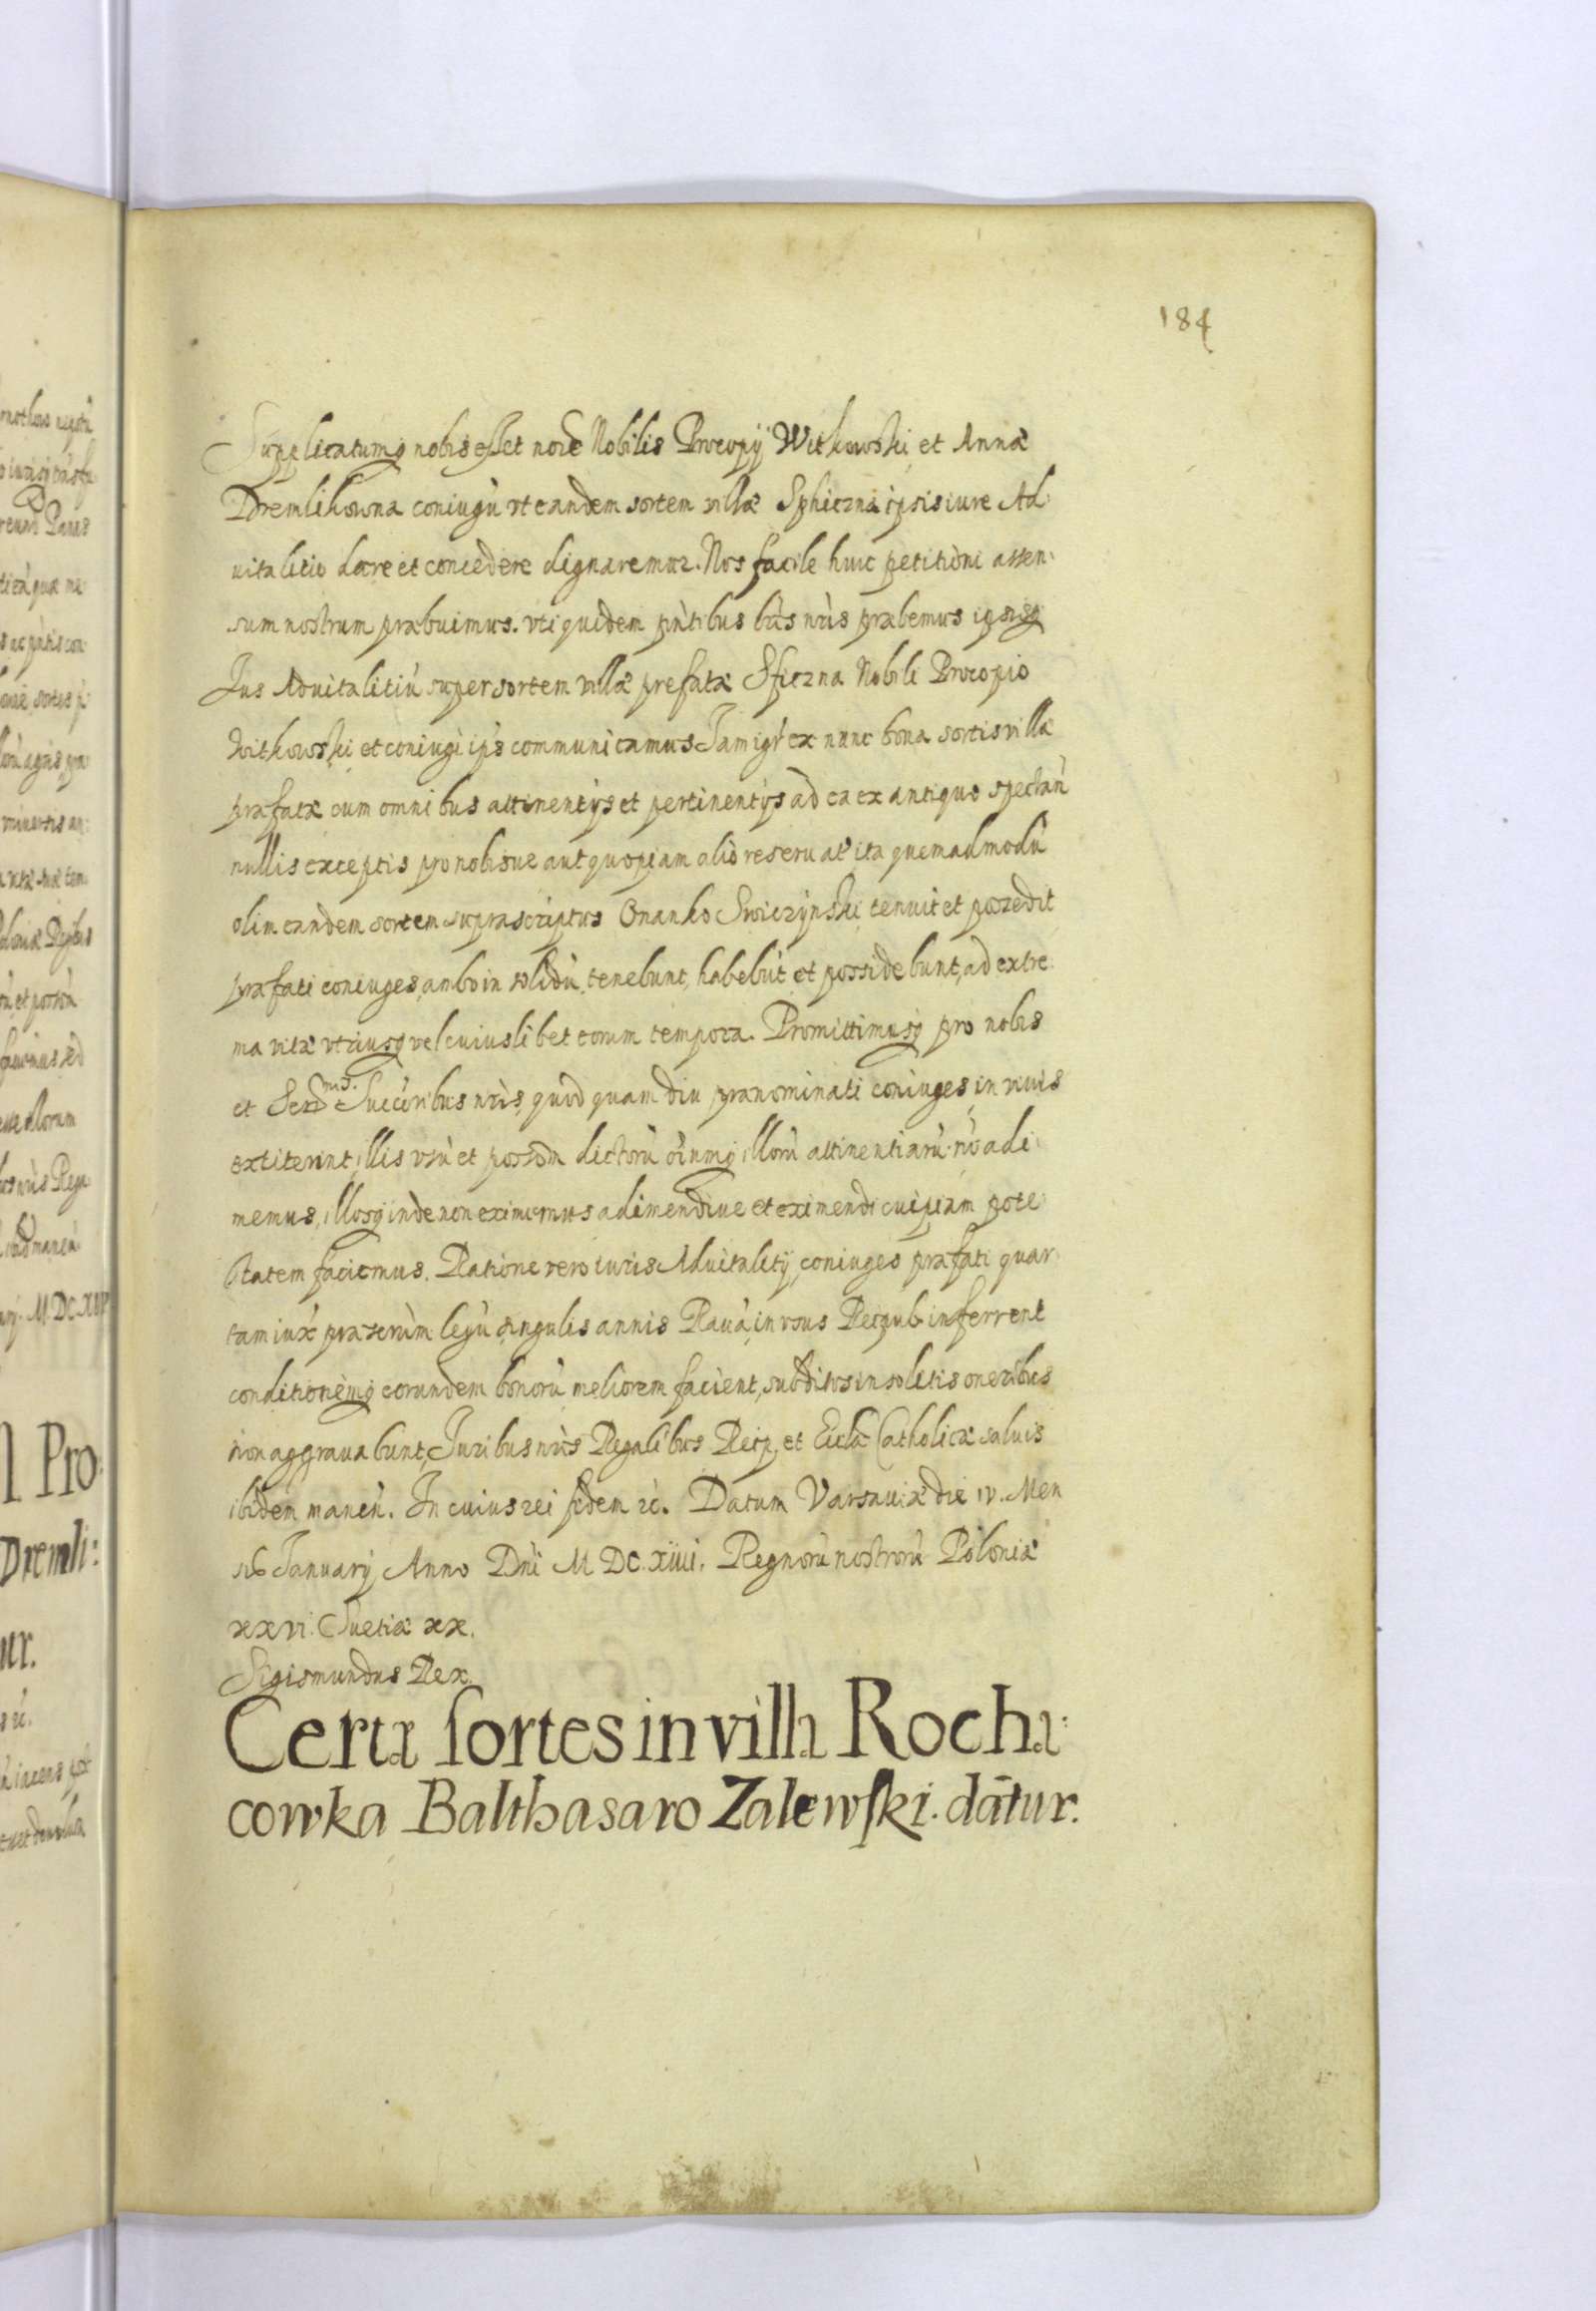 184
Supplicatumq nobis esset noïe Nobilis Procopÿ Witkowski et Annæ
Dremlikowna coniugù vt eandem sortem villæ Sphiczna ipsis iure Ad:
uitalitio dare et concedere dignaremur. Nos facile huic petitioni assen:
sum nostrum præbuimus. vti quidem pñtibus lr̃is nr̃is præbemus ipsisq
Jus Aduitalitiù super sortem villæ prefatæ Sficzna Nobili Procopio
Witkowski et coniugi ip̃s communicamus Jam igr̃ ex nunc bona sortis villæ
præfatæ cum omnibus attinentijs et pertinentijs ad ea ex antiquo spectañ
nullis exceptis pro nobisue aut quopiam alio reseruat̃ ita quemadmodù
olim eandem sortem suprascriptus Onanko Swiczynski tenuit et possedit
præfati coniuges, ambo in solidù, tenebunt, habebùt et possidebunt, ad extre:
ma vitæ vtriusq vel cuiuslibet eorum tempora. Promittimusq pro nobis
et Ser^mis. Succoribus nr̃is, quod quam diu prænominati coniuges, in viuis
extiterint, illis vsù et possõm dictorù oĩumq illorù attinentiarù nõ adi:
memus, illosq inde non eximemus adimendiue et eximendi cuipiam pote:
statem faciemus. Ratione vero iuris Aduitalitÿ, coniuges præfati quar:
tam iux̃ præscrum legù singulis annis Rauà, in vsus Reipub. inferrent
conditionèmq eorundem bonorù meliorem facient, subditos insolitis oneribus
non aggrauabunt, Juribus nr̃is Regalibus Reip. et Eccl̃æ Catholicæ saluis
ibidem maneñ. In cuius rei fidem ꝛc. Datum Varsauiæ die IV. Men
sis Januarÿ Anno Dñi M DC. XIIII. Regnorù nostrorù Poloniæ
xxvi. Suetiæ xx.
Sigismundus Rex.
Certæ sortes in villa Rocha:
cowka Balthasaro Zalewski. dãtur.